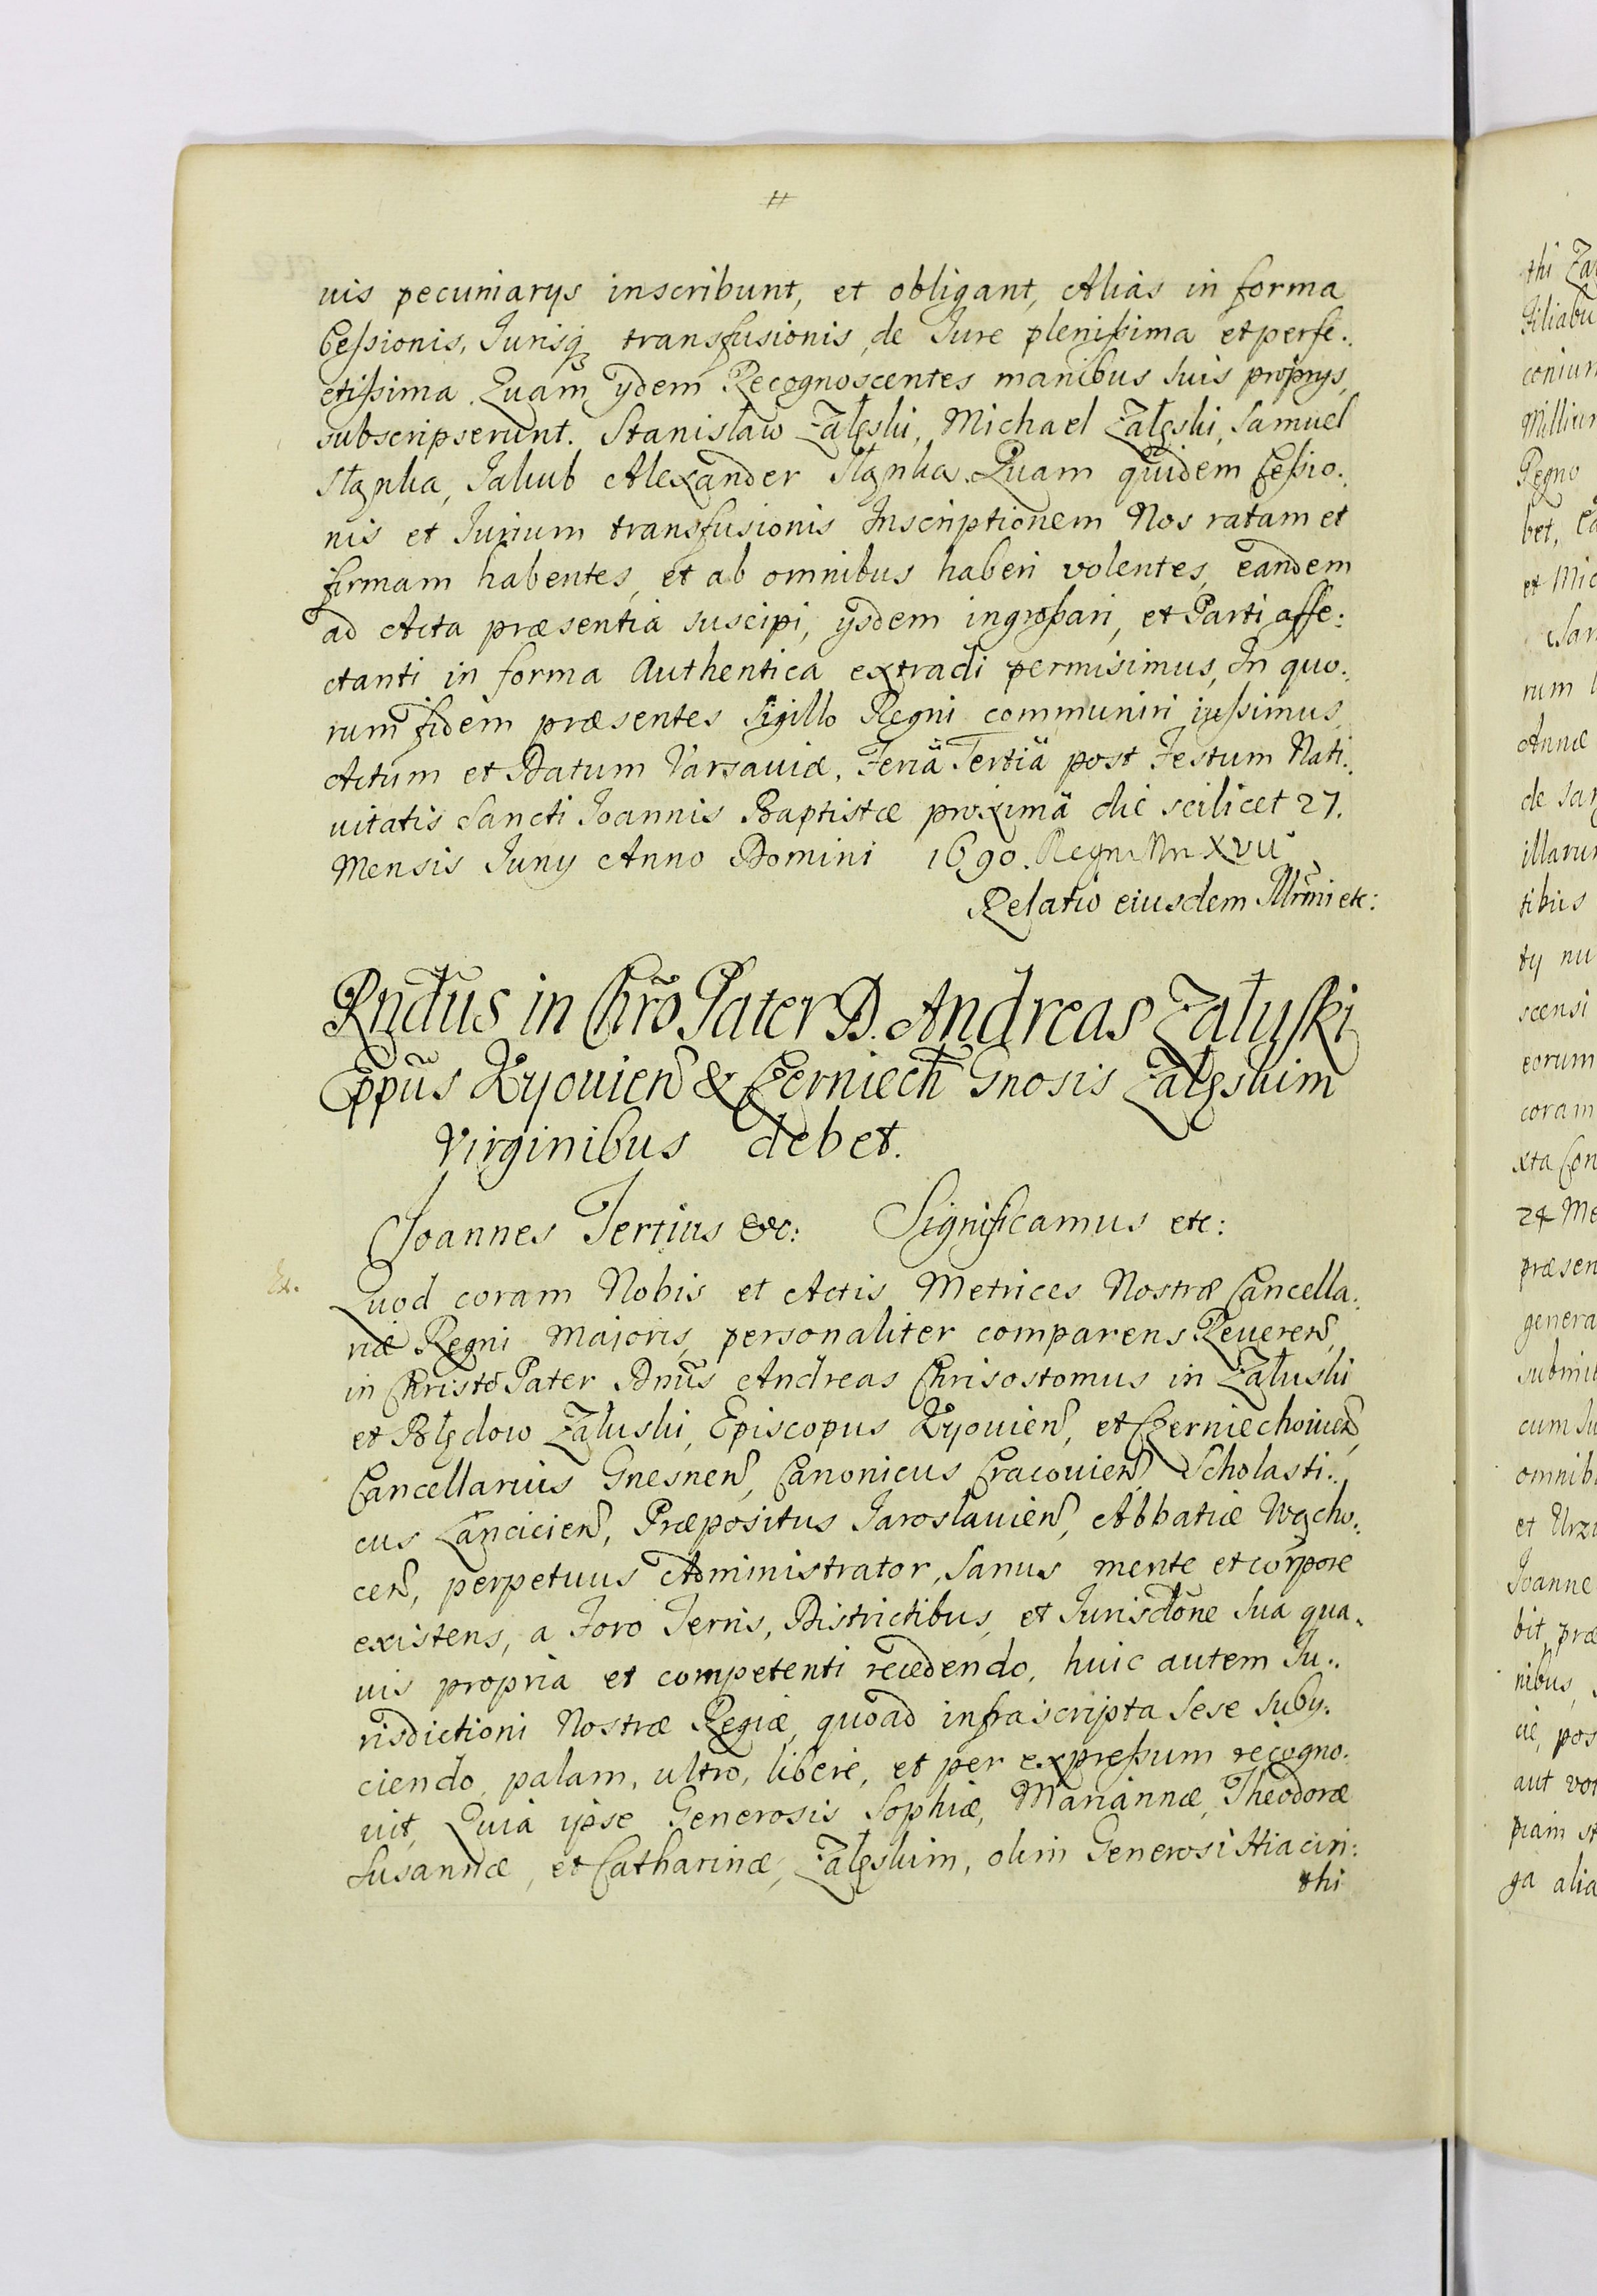 uis pecuniarys inscribunt, et obligant, Alias in forma
Ceßionis, Jurisq̃ transfusionis, de Jure plenißima et perfe:
ctißima. Quam ydem Recognoscentes manibus suis proprys,
subscripserunt. Stanisław Załęski, Michael Załęski, Samuel
Jakub Alexander Quam quidem Ceßio:
nis et Jurium transfusionis Inscriptionem Nos ratam et
firmam habentes, et ab omnibus haberi volentes, eandem
ad Acta præsentia suscipi, ysdem ingroßari, et Parti affe:
ctanti in forma Authentica extradi permisimus, In quo:
rum fidem præsentes Sigillo Regni communiri jußimus
Actum et Datum Varsaviæ, Feriâ Tertiâ post Festum Nati:
uitatis Sancti Joannis Baptistæ proximâ die scilicet 27.
Mensis Juny Anno Domini 1690. Regni Nri XVII
Relatio eiusdem Illrmi etc:
Rndūs in Chrō Pater D. Andreas Załuski
Eppūs Kyouien̄ & Czerniech̄ Gnosis Załęskim
virginibus debet.
Joannes Tertius &c: Significamus etc:
Ex. Quod coram Nobis et Actis Metrices Nostræ Cancella:
riæ Regni Majoris, personaliter comparens Reueren̄,
in Christo Pater Dnūs Andreas Chrisostomus in Załuski
et Błędow Załuski, Episcopus Kyouien̄, et Czerniechouien̄,
Cancellarius Gnesnen̄, Canonicus Cracouien̄, Scholasti:
cus Lancicien̄, Præpositus Jaroslauien̄, Abbatiæ Wącho:
cen̄, perpetuus Administrator, Sanus mente et corpore
existens, a Foro Terris, Districtibus, et Jurisdōne sua qua:
uis propria et competenti recedendo, huic autem Ju:
risdictioni Nostræ Regiæ, quoad infrascripta Sese suby:
ciendo, palam, ultro, libere, et per expreßum recogno:
uit, Quia ipse Generosis Sophiæ, Mariannæ, Theodoræ
Susannæ, et Catharinæ, Załęskim, olim Generosi Hiacin:
thi